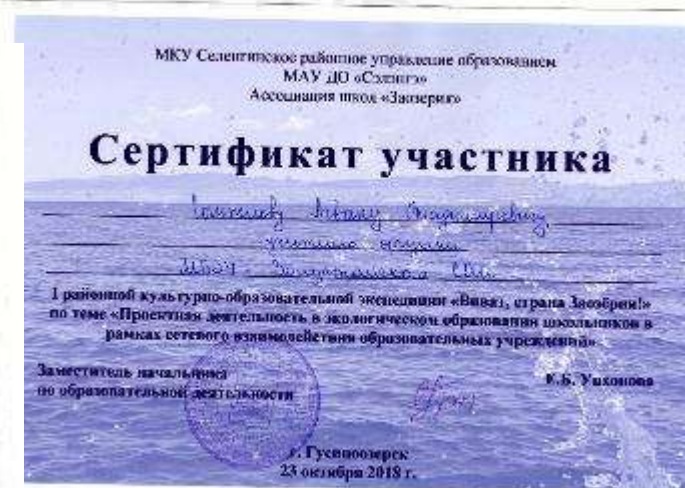 МКУ Селенгинское районное управление образованием
МАУ ДО «Сэлэнгэ»
Ассоциация школ «Заозерия»
Сертификат участника
Ивану Владимировичу
учителю
МБОУ СОШ
I районной культурно-образовательной экспедиции «Виват, страна Заозёрия!»
по теме «Проектная деятельность в экологическом образовании школьников в
рамках сетевого взаимодействия образовательных учреждений»
Заместитель начальника
по образовательной деятельности
Е.Б. Унхонова
г. Гусиноозерск
23 октября 2018 г.